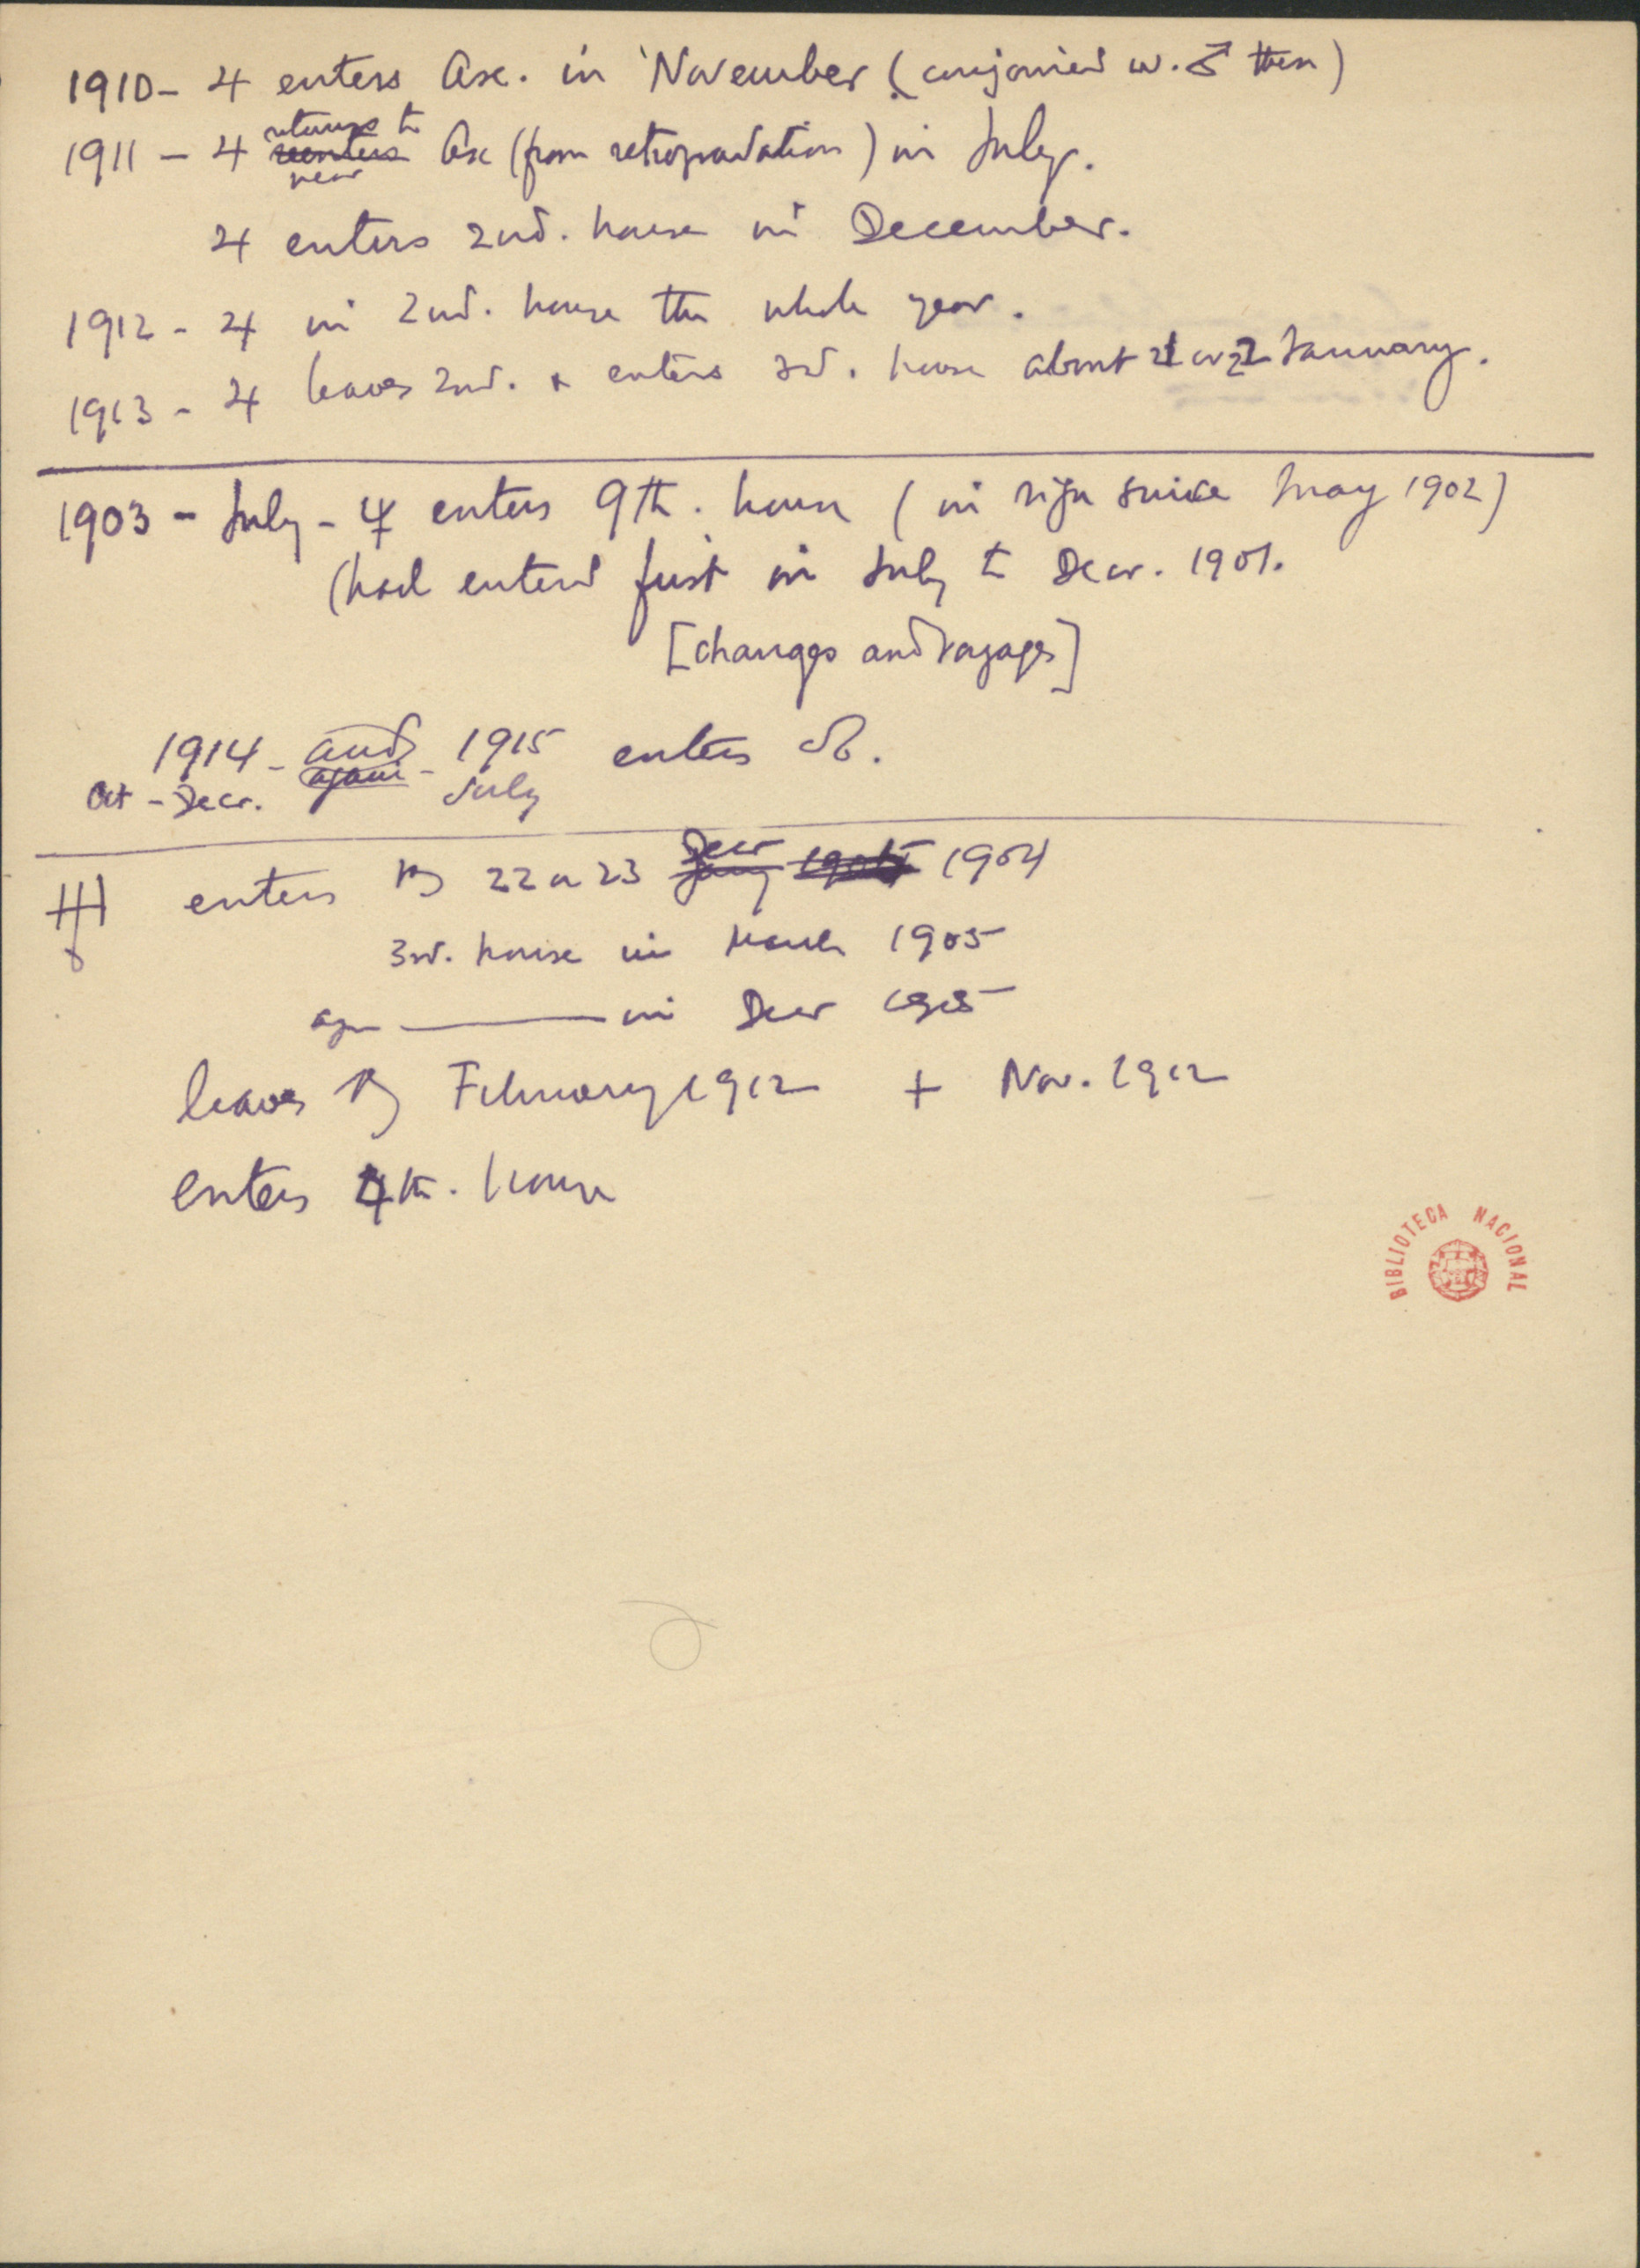 1910 – ♃ enters Asc. in November (conjoined w. ♂ then)
1911 – ♃ returns to near Asc (from retrogradation) in July.
♃ enters 2nd. house in December.
1912 – ♃ in 2nd. house the whole year.
1913 – ♃ leaves 2nd. & enters 3rd. house about 21 or 22 January.
1903 – July – ♆ enters 9th. house (in sign since May 1902)
(had entered first in July to Decr. 1901.
[changes and voyages]
1914 – and – 1915 enters ♌.
Oct – Decr. again July
♅ enters ♑ 22 or 23 Decr 1904
3rd. house in March 1905
agn ——— in Decr 1905
leaves ♑ February 1912 + Nov. 1912
enters 4th. house
BIBLIOTECA NACIONAL